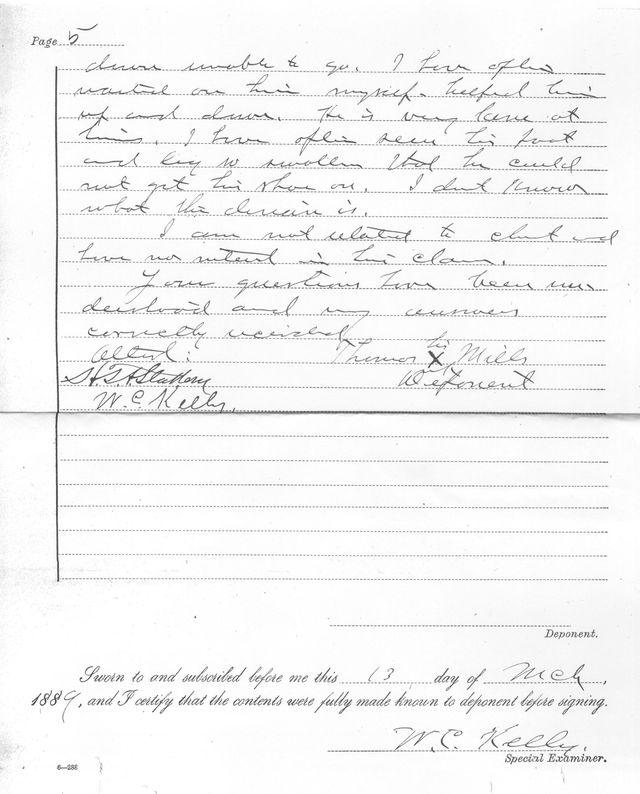 Page 5
down unable to go. I have often
waited on him myself - helped him
up and down. He is very lame at
times. I have often seen his foot
and leg so swollen that he could
not get his shoe on. I dont know
what the disease is.
I am not related to clmt and
have no interest in his claim.
Your questions have been un
derstood and my answers
correctly recorded
Attest: Thomas his X Mills
Deponent
W. C. Kelly.
Deponent.
Sworn to and subscribed before me this 13 day of Mch,
1889, and I certify that the contents were fully made known to deponent before signing.
W. C. Kelly.
Special Examiner.
6—288